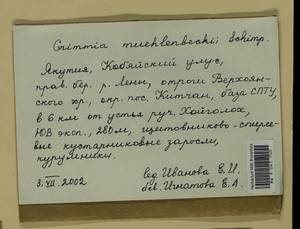 Grimmia muehlenbeckii Schimp.
Якутия, Кобяйский улус,
прав. бер. р. Лены, отроги Верхоян-
ского хр., окр. пос. Китчан, база СПТУ,
в 6 км от устья руч. Хойголох,
ЮВ эксп., 280м, щитовниково-спирее-
вые кустарниковые заросли,
курумники.
3.VII.2002
leg Иванова Е.И.
det. Игнатова Е.А.